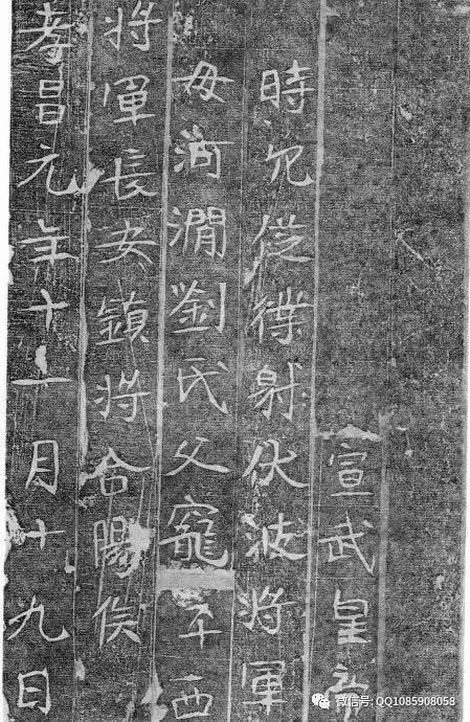 宣武皇帝
時冗從僕射伏波將軍
母河澗劉氏父寵平西
將軍長安鎮將合陽侯
孝昌元年十二月十九日
微信号: QQ1085908058